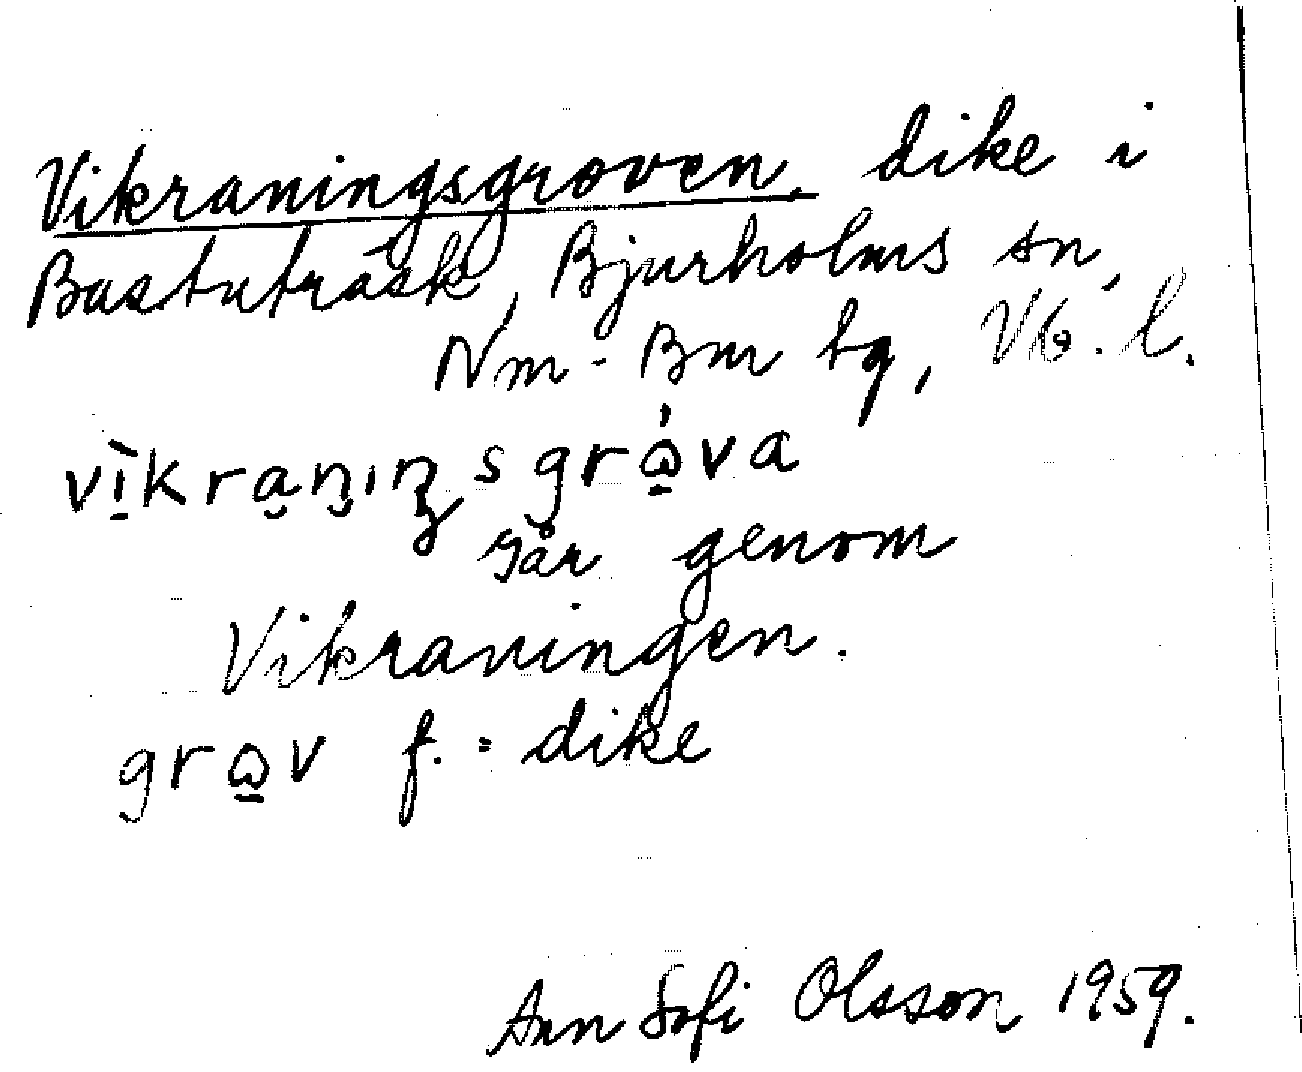 Vikraningsgroven, dike i
Bastuträsk, Bjurholms sn,
Nm-Bm tg, Vb. l.
vìkranıŋsgrώ̣va
går genom
Vikraningen.
grω̣v f. = dike
Ann Sofi Olsson 1959.